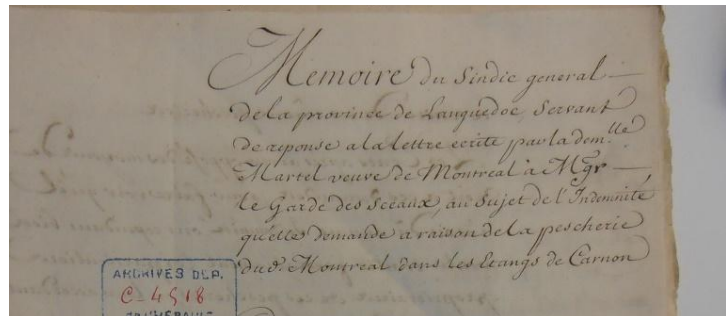 Memoire du Sindic general
de la province de Languedoc Servant
de reponse a la lettre ecrite par la dem.lle
Martel veuve de Montreal à Mgr
le Garde des Sceaux, au Sujet de l'Indemnité
qu'elle demande a raison de la pescherie
dud. Montreal dans les Etangs de Carnon
ARCHIVES DEP.
C-4518